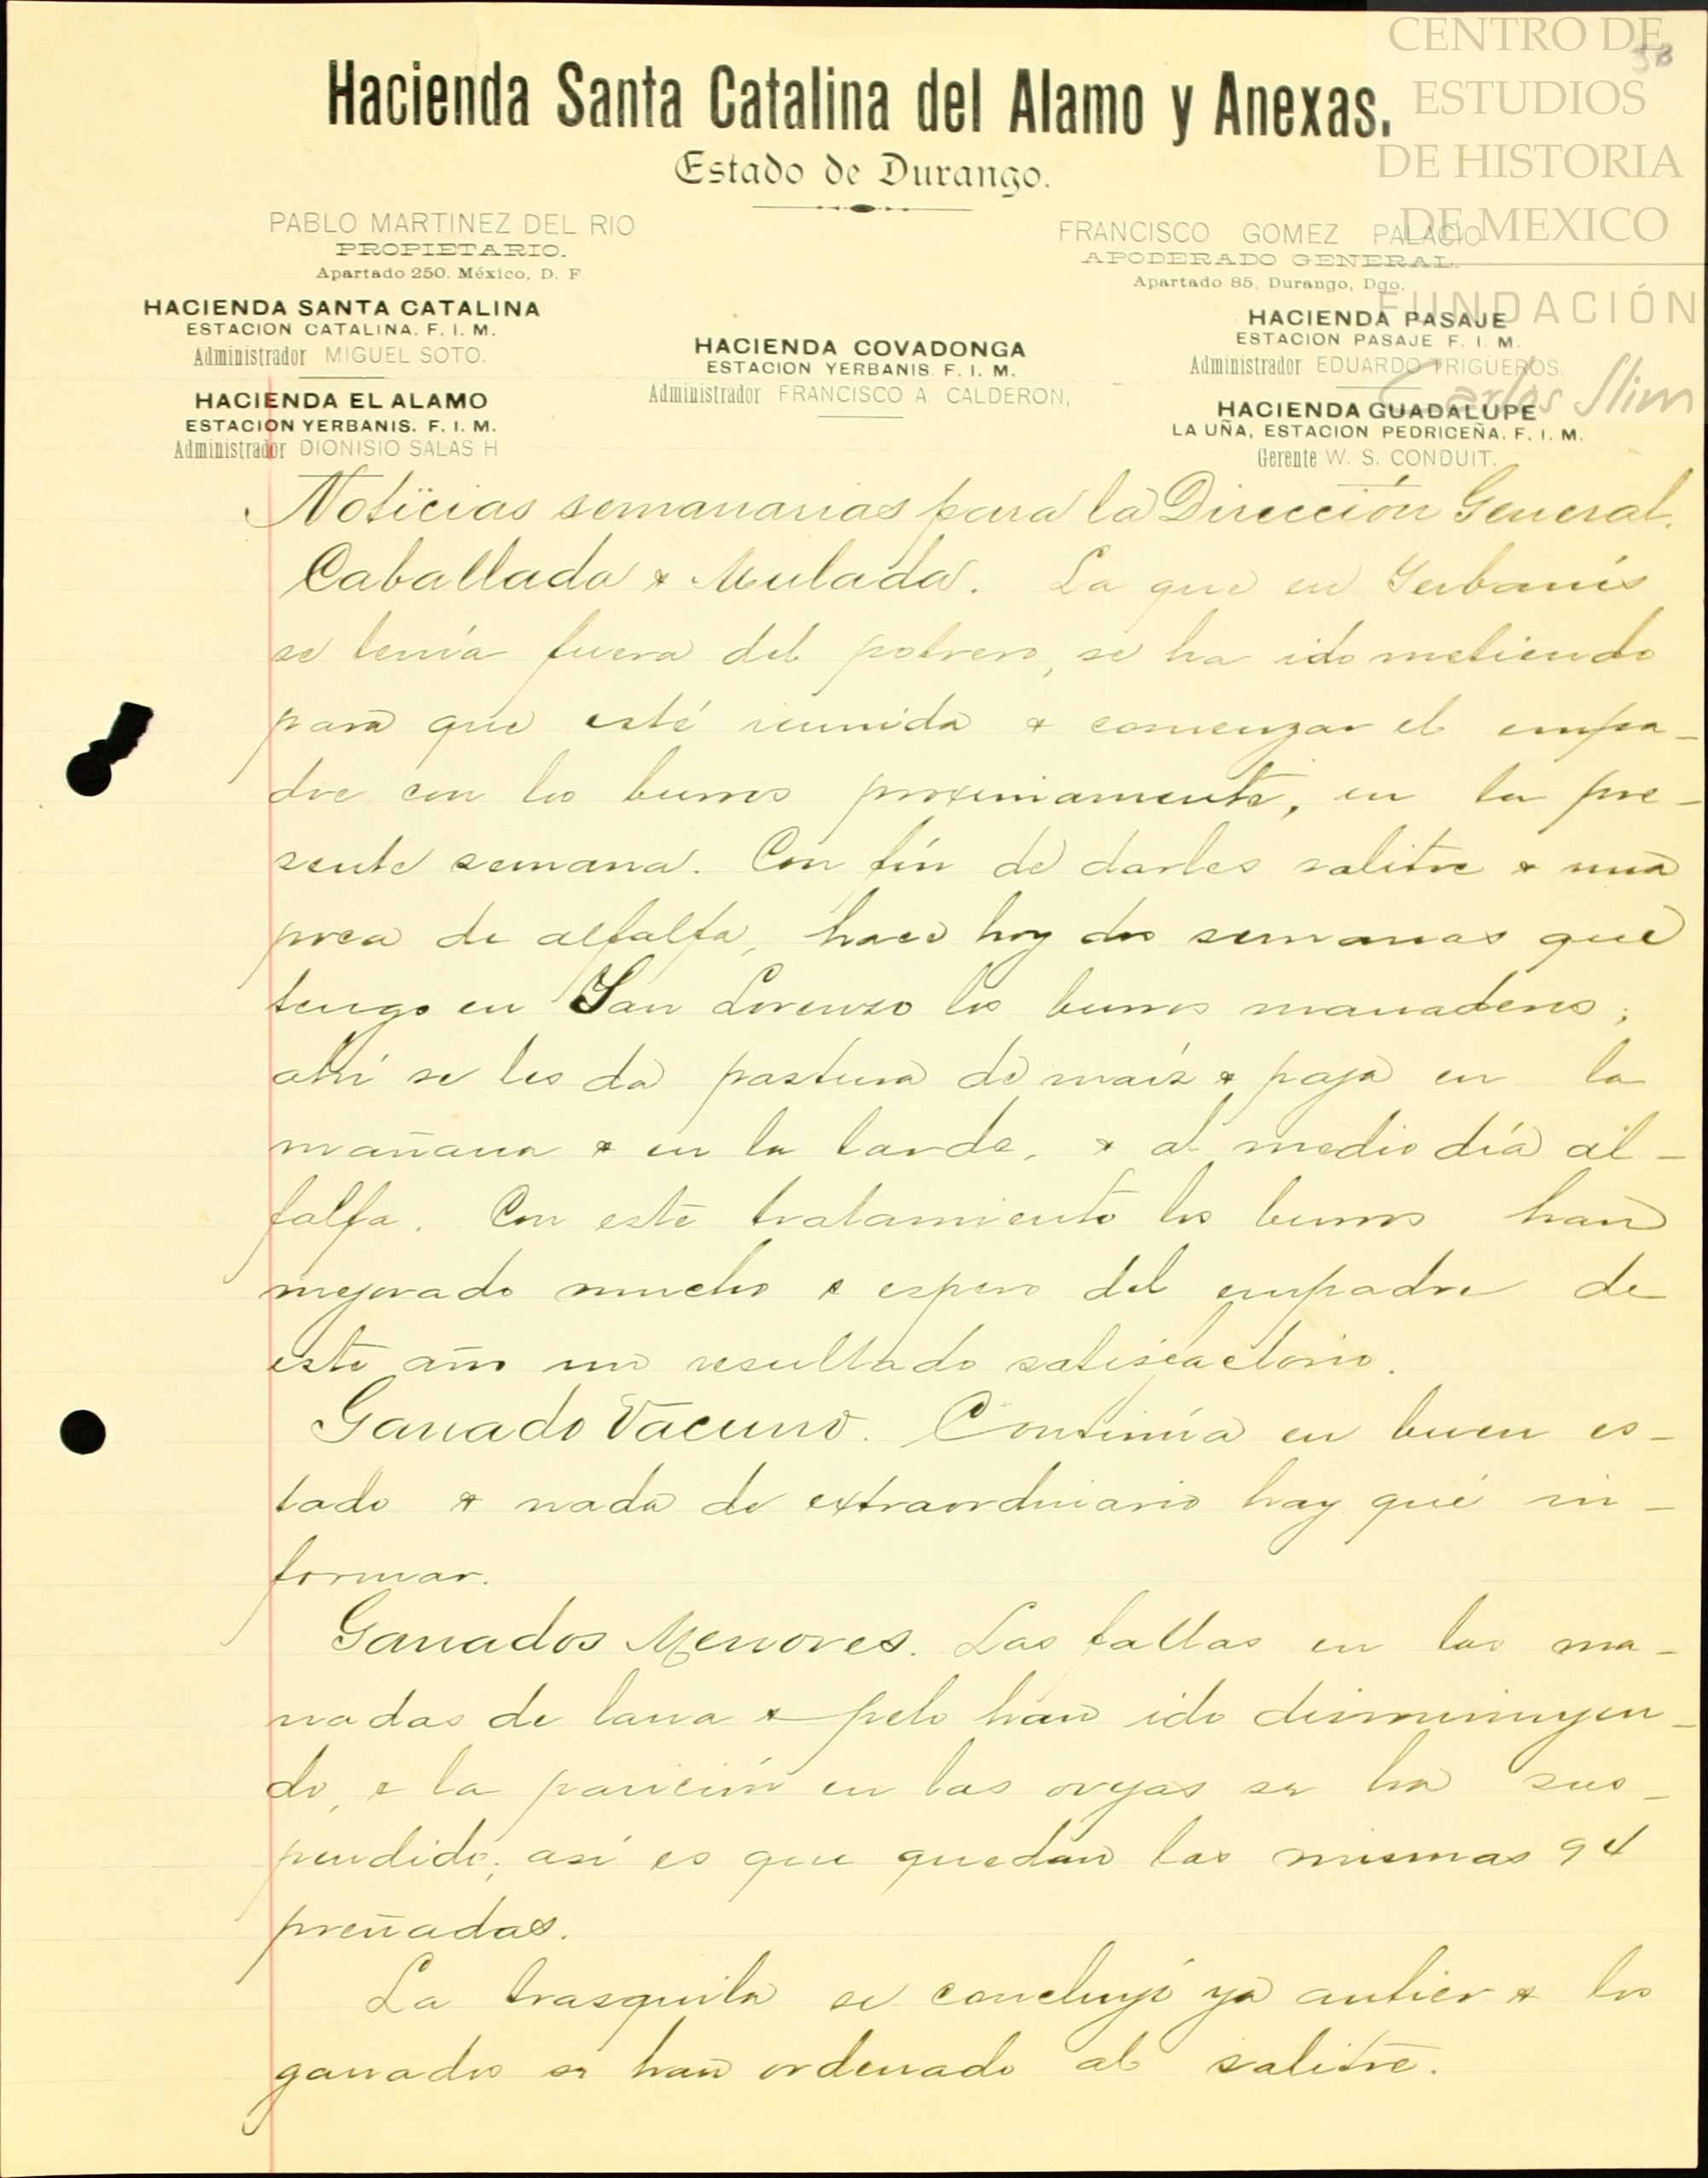 CENTRO DE
ESTUDIOS
DE HISTORIA
DE MEXICO
FUNDACIÓN
Carlos Slim
Hacienda Santa Catalina del Alamo y Anexas.
Estado de Durango.
PABLO MARTINEZ DEL RIO
PROPIETARIO.
Apartado 250. México, D. F.
FRANCISCO GOMEZ PALACIO
APODERADO GENERAL.
Apartado 85, Durango, Dgo.
HACIENDA SANTA CATALINA
ESTACION CATALINA. F. I. M.
Administrador MIGUEL SOTO.
HACIENDA EL ALAMO
ESTACION YERBANIS. F. I. M.
Administrador DIONISIO SALAS H
HACIENDA COVADONGA
ESTACION YERBANIS. F. I. M.
Administrador FRANCISCO A. CALDERON,
HACIENDA PASAJE
ESTACION PASAJE F. I. M.
Administrador EDUARDO TRIGUEROS.
HACIENDA GUADALUPE
LA UÑA, ESTACION PEDRICEÑA. F. I. M.
Gerente W. S. CONDUIT.
Noticias semanarias para la Dirección General.
Caballada & Mulada. La que en Yerbanís
se tenía fuera del potrero, se ha ido metiendo
para que esté reunida & comenzar el empa-
dre con los burros proximamente, en la pre-
sente semana. Con fín de darles salitre & una
poca de alfalfa, hace hoy dos semanas que
tengo en San Lorenzo los burros manaderos;
ahí se les da pastura de maíz & paja en la
mañana & en la tarde, & al medio día al-
falfa. Con este tratamiento los burros han
mejorado mucho & espero del empadre de
este año un resultado satisfactorio.
Ganado Vacuno. Continúa en buen es-
tado & nada de extraordinario hay qué in-
formar.
Ganados Menores. Las fallas en las ma-
nadas de lana & pelo han ido disminuyen-
do, & la parición en las ovejas se ha sus-
pendido; así es que quedan las mismas 94
preñadas.
La trasquila se concluyó ya antier & los
ganados se han ordenado al salitre.